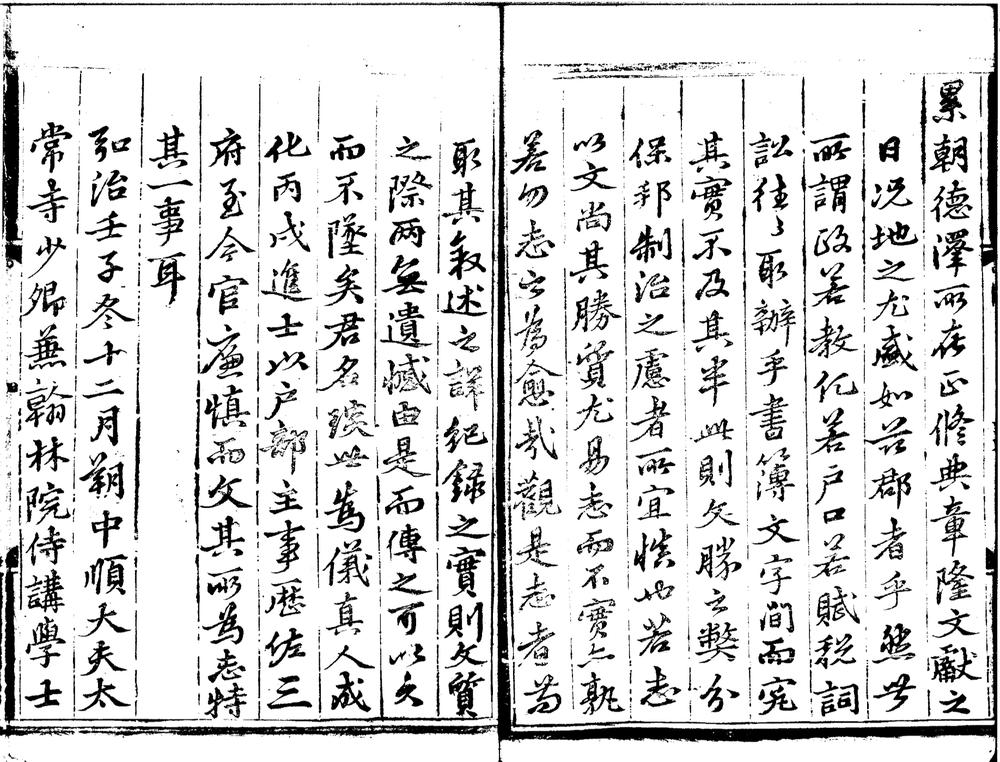 累朝德澤所在正修典章隆文獻之
日况地之尤盛如茲郡者乎然世
所謂政若教化若户口若賦税詞
訟徃々取辦乎書簿文字間而究
其實不及其半此則文勝之弊分
保邦制治之慮者所宜慎也若志
以文尚其勝質尤易志而不實亦孰
若勿志之為愈哉觀是志者苟
取其叙述之詳紀録之實則文質
之際兩無遺憾由是而傳之可以久
而不墜矣君名琰世為儀真人成
化丙戌進士以户部主事歷佐三
府至今官廉慎而文其所為志特
其一事耳
弘治壬子冬十二月朔中順大夫太
常寺少卿兼翰林院侍講學士